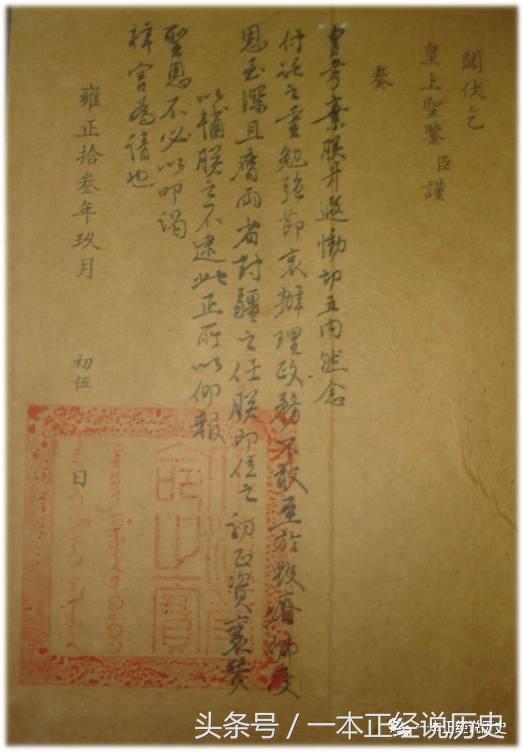 聞伏乞
皇上聖鑒臣謹
奏
皇考棄朕升遐慟切五内然念
付託之重勉強節哀辦理政務不敢至於毀瘠卿受
恩至深且膺兩省封疆之任朕即位之初正資襄贊
以補朕之不逮此正所以仰報
聖恩不必以叩謁
梓宮為請也
雍正拾叁年玖月 初伍 日
命之寶
头条号 / 一本正经说历史